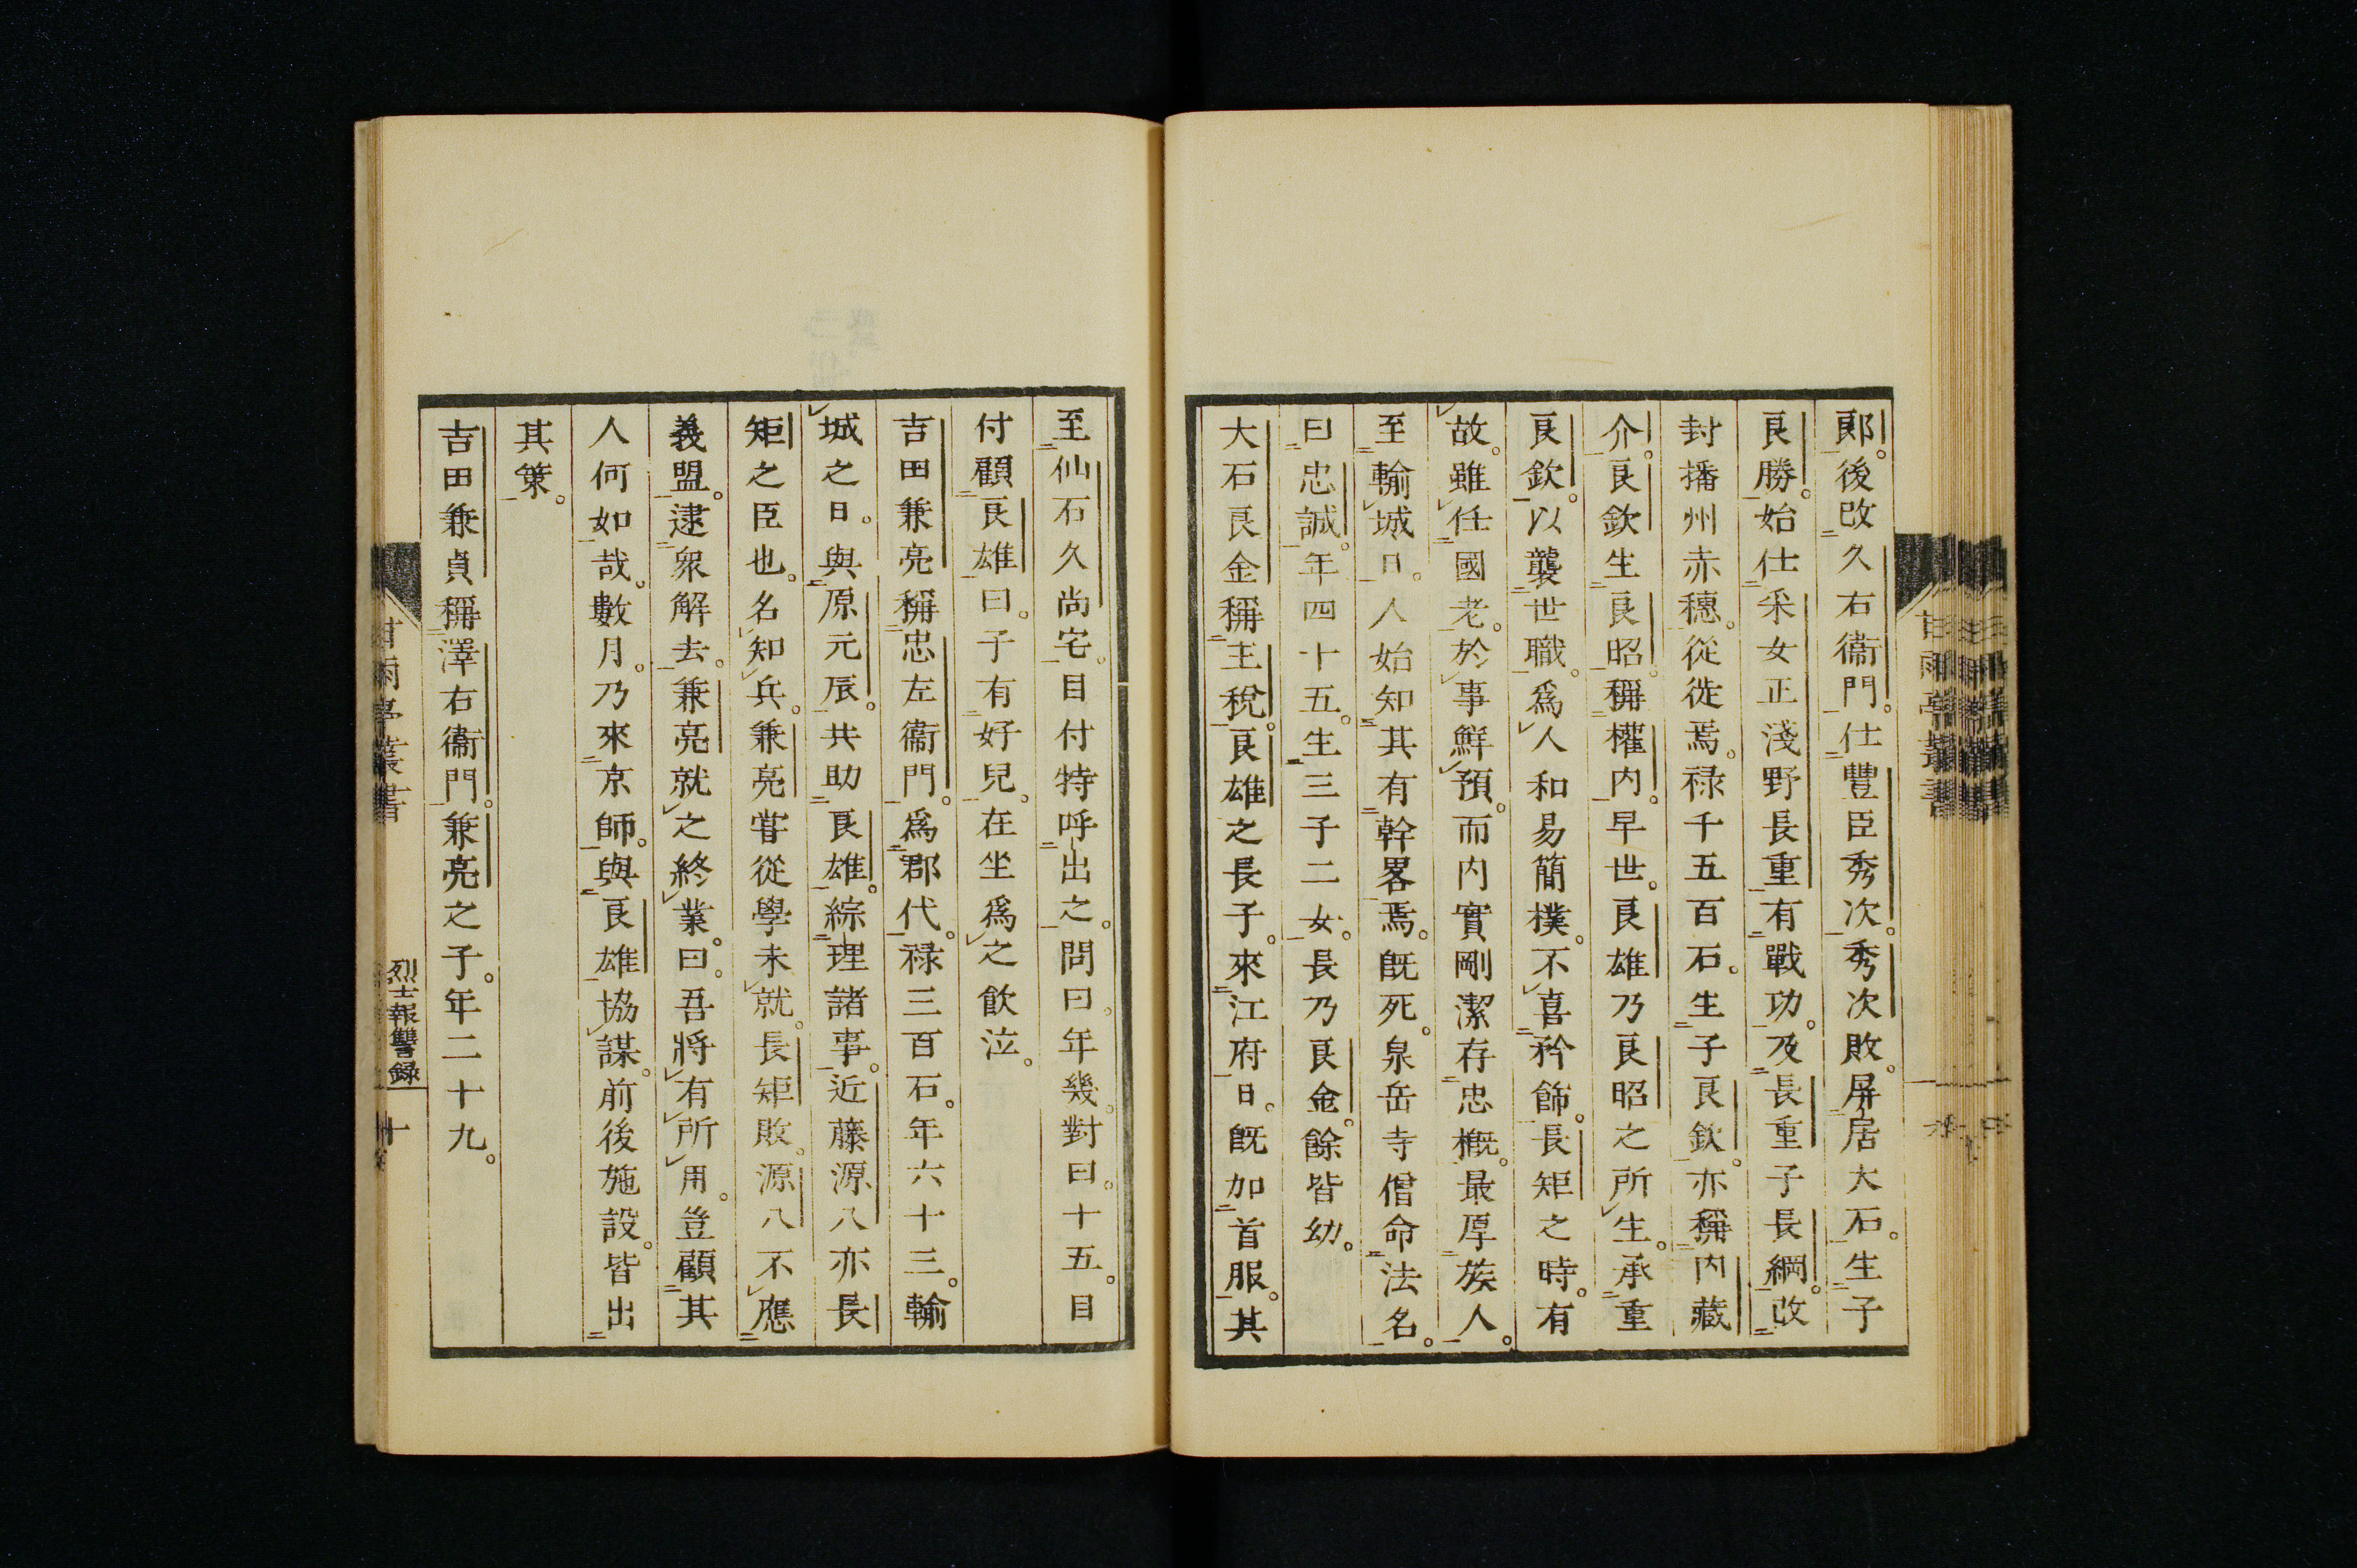 郞。後改久右衞門。仕豐臣秀次。秀次敗。屏居大石。生子
良勝。始仕采女正淺野長重有戰功。及長重子長綱。改
封播州赤穗。從徙焉。禄千五百石。生子良欽。亦稱内藏
介。良欽生良昭。稱權内。早世。良雄乃良昭之所生。承重
良欽。以襲世職。爲人和易簡樸。不喜矜飾。長矩之時。有
故。雖任國老。於事鮮預。而内實剛潔存忠槪。最厚族人。
至輸城日。人始知其有幹畧焉。旣死。泉岳寺僧命法名。
曰忠誠。年四十五。生三子二女。長乃良金。餘皆幼。
大石良金稱主稅。良雄之長子。來江府日。旣加首服。其
至仙石久尚宅。目付特呼出之。問曰。年幾。對曰。十五。目
付顧良雄曰。子有好兒。在坐爲之飮泣。
吉田兼亮稱忠左衞門。爲郡代。禄三百石。年六十三。輸
城之日。與原元辰。共助良雄。綜理諸事。近藤源八亦長
矩之臣也。名知兵。兼亮嘗從學未就。長矩敗。源八不應
義盟。逮衆解去。兼亮就之終業。曰。吾將有所用。豈顧其
人何如哉。數月。乃來京師。與良雄協謀。前後施設。皆出
其策。
吉田兼貞稱澤右衞門。兼亮之子。年二十九。
甘雨亭叢書
烈士報讐録
十